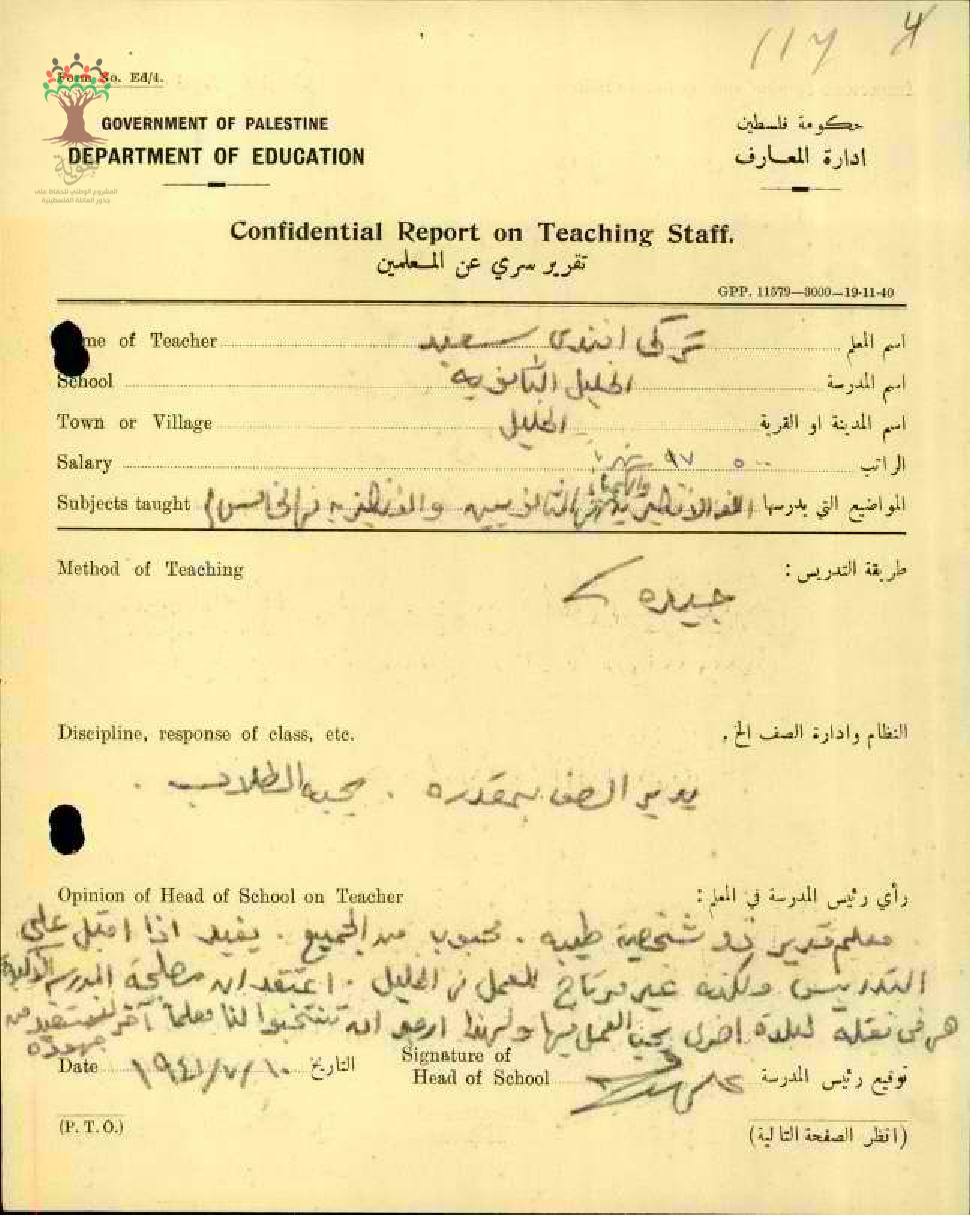 117 4
Form No. Ed/4.
GOVERNMENT OF PALESTINE
حكومة فلسطين
DEPARTMENT OF EDUCATION
ادارة المعارف
هوية
المشروع الوطني للحفاظ على
جذور العائلة الفلسطينية
Confidential Report on Teaching Staff.
تقرير سري عن المعلمين
GPP. 11579—3000—19-11-40
me of Teacher تركي افندي سعيد اسم المعلم
School الخليل الثانوية اسم المدرسة
Town or Village الخليل اسم المدينة او القرية
Salary ٩٧ ٥٠٠ الراتب
Subjects taught والانكليزيه في الخامس المواضيع التي يدرسها
Method of Teaching طريقة التدريس :
جيده
Discipline, response of class, etc. النظام وادارة الصف الخ .
يدير الصف بمقدره . يحبه الطلاب .
Opinion of Head of School on Teacher رأي رئيس المدرسة في المعلم :
معلم قدير ذو شخصية طيبه . محبوب من الجميع . يفيد اذا اقبل على
التدريس ولكنه غير مرتاح للعمل في الخليل . اعتقد ان مصلحة المدرسة
هي في نقله لبلدة اخرى يحب العمل فيها ولهذا ارجو ان تنتخبوا لنا معلماً آخر لنستفيد من
جهوده
Date ١٩٤١/٧/١٠ التاريخ
Signature of
Head of School توقيع رئيس المدرسة
(P. T. O.) (انظر الصفحة التالية)